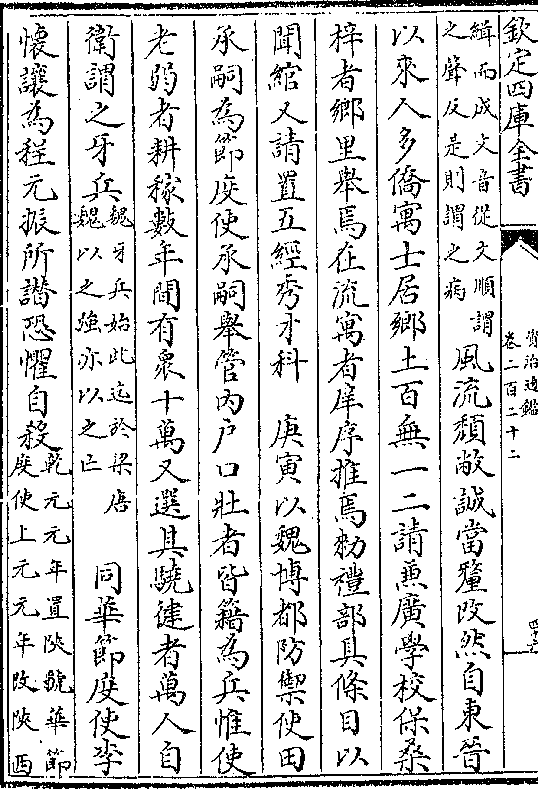 欽定四庫全書
資治通鑑
卷二百二十二
緝而成文音從文順謂
之聲反是則謂之病
風流頹敝誠當釐改然自東晉
以來人多僑寓士居鄉土百無一二請兼廣學校保桑
梓者鄉里舉焉在流寓者庠序推焉勑禮部具條目以
聞綰又請置五經秀才科 庚寅以魏博都防禦使田
承嗣為節度使承嗣舉管內户口壯者皆籍為兵惟使
老弱者耕稼數年間有衆十萬又選其驍健者萬人自
衛謂之牙兵
魏牙兵始此迄於梁唐
魏以之強亦以之亡
同華節度使李
懷讓為程元振所譖恐懼自殺
乾元元年置陝虢華節
度使上元元年改陝西